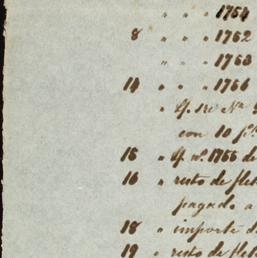 " " " 1754
8 " " " 1762
" " " 1763
14 " " " 1766
con 10
15 " nº 1766 de
16 " resto de flet
pagado a
18 " importe d
19 " resto de flet